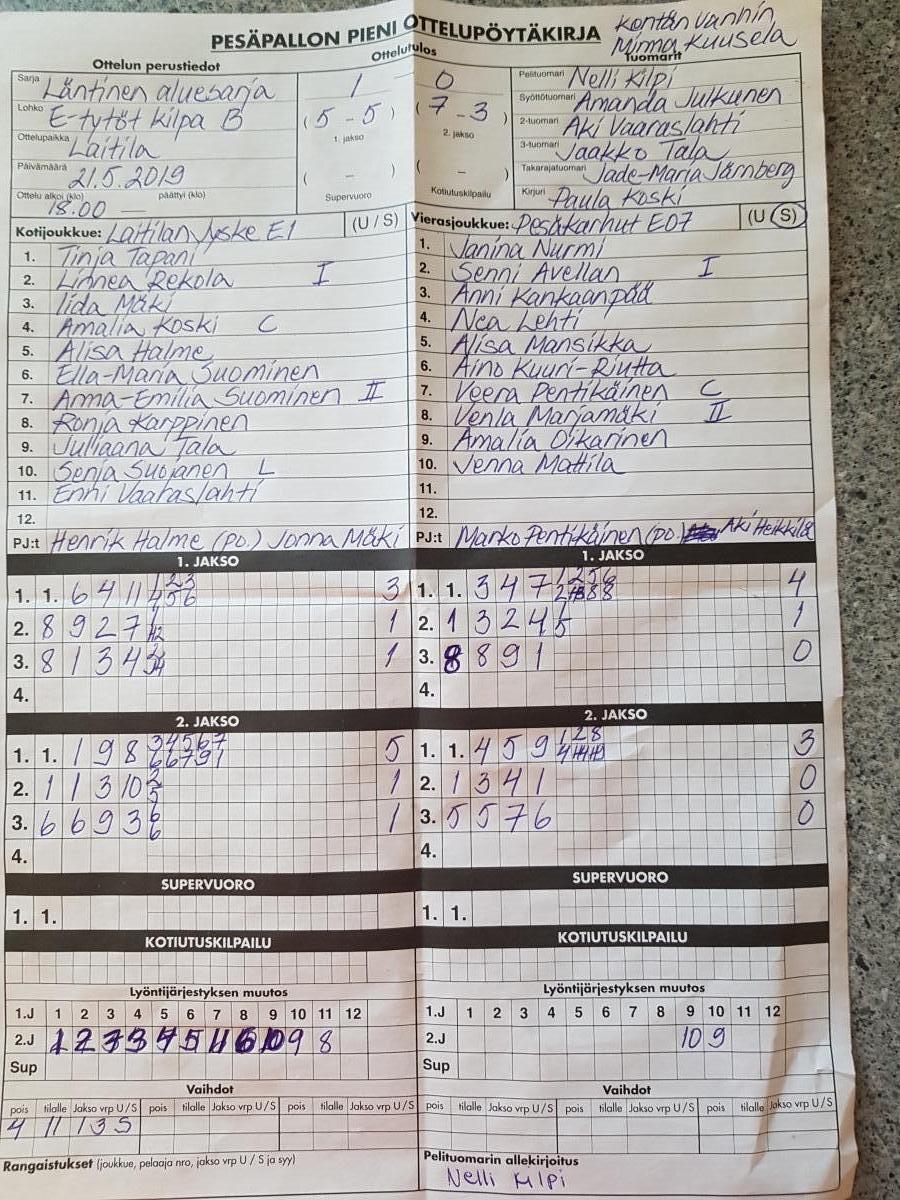 PESÄPALLON PIENI OTTELUPÖYTÄKIRJA
Kentän vanhin
Minna Kuusela
Ottelun perustiedot
Ottelutulos
Tuomarit
Sarja Läntinen aluesarja
1 0
Pelituomari Nelli Kilpi
Lohko E-tytöt kilpa B
(5 - 5) (7 - 3)
1. jakso 2. jakso
Syöttötuomari Amanda Julkunen
2-tuomari Aki Vaaraslahti
Ottelupaikka Laitila
3-tuomari Jaakko Tala
Päivämäärä 21.5.2019
( - ) ( - )
Takarajatuomari Jade-Maria Järnberg
Ottelu alkoi (klo) päättyi (klo)
18.00 —
Supervuoro Kotiutuskilpailu
Kirjuri Paula Koski
Kotijoukkue: Laitilan Jyske E1 (U / S)
1. Tinja Tapani
2. Linnea Rekola I
3. Iida Mäki
4. Amalia Koski C
5. Alisa Halme
6. Ella-Maria Suominen
7. Anna-Emilia Suominen II
8. Ronja Karppinen
9. Juliaana Tala
10. Senja Suojanen L
11. Enni Vaaraslahti
12.
PJ:t Henrik Halme (PO.) Jonna Mäki
Vierasjoukkue: Pesäkarhut E07 (U / S)
1. Janina Nurmi
2. Senni Avellan I
3. Anni Kankaanpää
4. Nea Lehti
5. Alisa Mansikka
6. Aino Kuuri-Riutta
7. Veera Pentikäinen C
8. Venla Marjamäki II
9. Amalia Oikarinen
10. Venna Mattila
11.
12.
PJ:t Marko Pentikäinen (PO) Aki Heikkilä
1. JAKSO
1. 1. 6 4 11 3
2. 8 9 2 7 1
3. 8 1 3 4 1
4.
1. JAKSO
1. 1. 3 4 7 4
2. 1 3 2 4 1
3. 8 8 9 1 0
4.
2. JAKSO
1. 1. 1 9 8 3 4 5 6 7 5
6 6 7 9 1
2. 1 1 3 10 1
3. 6 6 9 3 6 1
6
4.
2. JAKSO
1. 1. 4 5 9 1 2 8 3
2. 1 3 4 1 0
3. 5 5 7 6 0
4.
SUPERVUORO
1. 1.
SUPERVUORO
1. 1.
KOTIUTUSKILPAILU
KOTIUTUSKILPAILU
Lyöntijärjestyksen muutos
1.J 1 2 3 4 5 6 7 8 9 10 11 12
2.J 1 2 7 3 4 5 11 6 10 9 8
Sup
Lyöntijärjestyksen muutos
1.J 1 2 3 4 5 6 7 8 9 10 11 12
2.J 10 9
Sup
Vaihdot
pois tilalle Jakso vrp U / S pois tilalle Jakso vrp U / S pois tilalle Jakso vrp U / S
4 11 1 3 S
Vaihdot
pois tilalle Jakso vrp U / S pois tilalle Jakso vrp U / S pois tilalle Jakso vrp U / S
Rangaistukset (joukkue, pelaaja nro, jakso vrp U / S ja syy)
Pelituomarin allekirjoitus
Nelli Kilpi